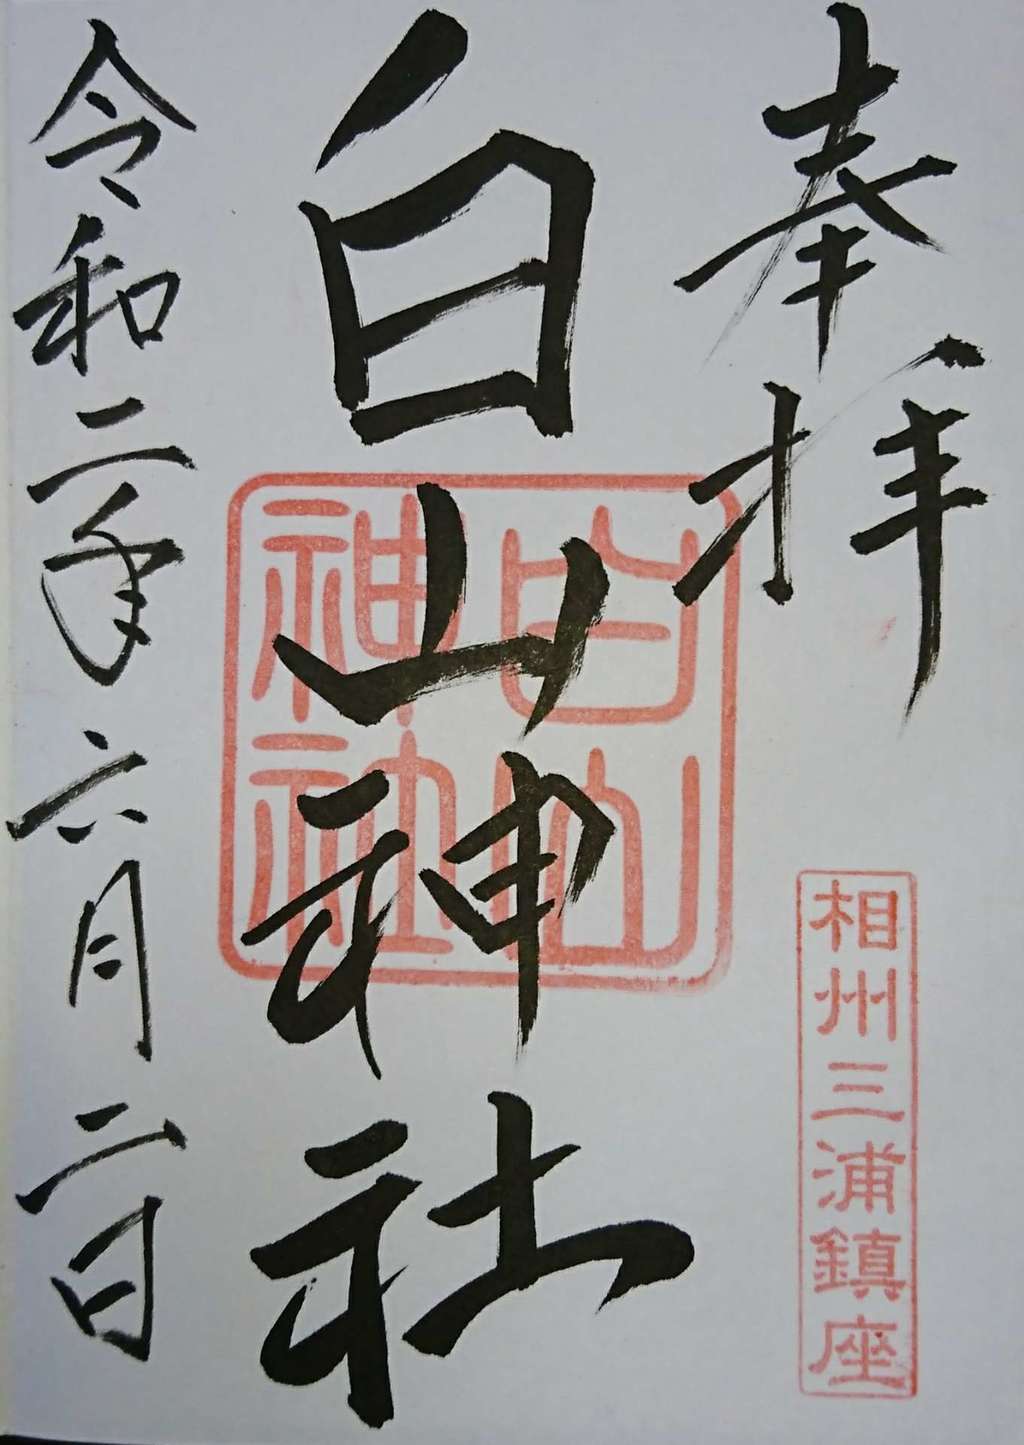 奉拝
相州三浦鎮座
白山神社
白山
神社
令和二年六月二日